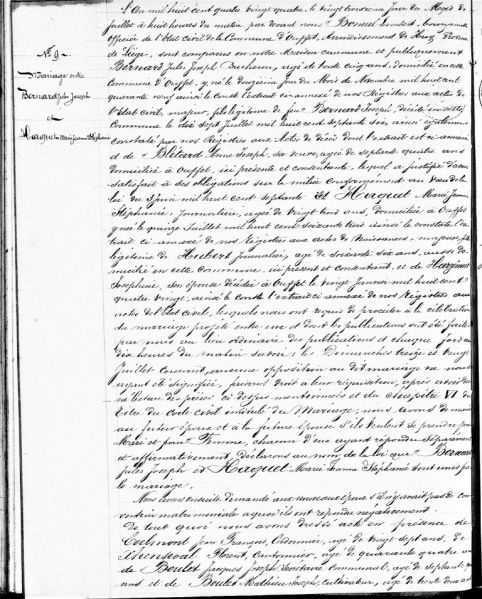 N° 9
Mariage entre
Bernard Jules Joseph
et
Haquet Marie Jeanne Stéphanie
L'An mil huit cent quatre vingt quatre, le vingt troisième jour du Mois de
Juillet à huit heures du matin par devant nous Borsu
officier de l'Etat Civil de la Commune d'Ouffet, Arrondissement de Huy, Province
de Liège, sont comparus en notre Maison commune et publiquement
Bernard Jules Joseph Bucheron, agé de trente cinq ans, domicilié en cette
Commune d'Ouffet, y né le jour du Mois de Novembre mil huit cent
quarante neuf ainsi le conste l'extrait ci annexé de nos Registres aux actes de
l'Etat Civil, majeur, fils légitime de feu Bernard Joseph, décédé en cette
Commune le sept Juillet mil huit cent septante six, ainsi également
constaté par nos Régistres aux Actes de décès dont l'extrait est ci annexé
et de Blétard Anne Joseph, sa veuve, agée de septante quatre ans
domiciliée à Ouffet, ici présente et consentante, lequel a justifié d'avoir
satisfait à ses obligations sur la milice conformément au vœu de la
loi du 3 juin mil huit cent septante Et Haquet Marie Jeanne
Stéphanie, Journalière, agée de vingt trois ans, domiciliée à Ouffet
y née le quinze Juillet mil huit cent soixante trois ainsi le constate l'ex-
trait ci annexé de nos Registres aux actes de Naissances, majeure, fille
légitime de Hubert Journalier, agé de soixante six ans, aussi do-
micilié en cette commune, ici présent et consentant, et de
Josephine, son épouse décédée à Ouffet le vingt Janvier mil huit cent
quatre vingt, ainsi le conste l'extrait ci annexé de nos Régistres aux
actes de l'Etat Civil, lesquels nous ont requis de procéder à la célébration
du mariage projeté entre eux et dont les publications ont été faites
par nous au lieu ordinaire des publications et chaque fois à
dix heures du matin savoir : les Dimanches treize et vingt
Juillet courant, aucune opposition au dit mariage ne nous
ayant été signifiée, faisant droit à leur réquisition, après avoir donné
lecture des pièces ci dessus mentionnées et du chapitre VI du
titre du code civil intitulé du Mariage, nous avons demandé
au futur époux et à la future épouse s'ils veulent se prendre pour
Mari et pour Femme, chacun d'eux ayant répondu séparément
et affirmativement, déclarons au nom de la loi que Bernard
Jules Joseph et Haquet Marie Jeanne Stéphanie sont unis par
le mariage.
Nous avons ensuite demandé aux nouveaux époux s'il n'avait pas de con-
vention matrimoniale à quoi ils ont répondu négativement.
De tout quoi nous avons dressé acte en présence de
Coelmont Jean François, Cordonnier, agé de vingt sept ans, de
Florent, Cantonnier, agé de quarante quatre ans
de Boulet Jacques Joseph Secrétaire communal, agé de septante
ans et de Boulet Mathieu Joseph, cultivateur, agé de trente deux ans